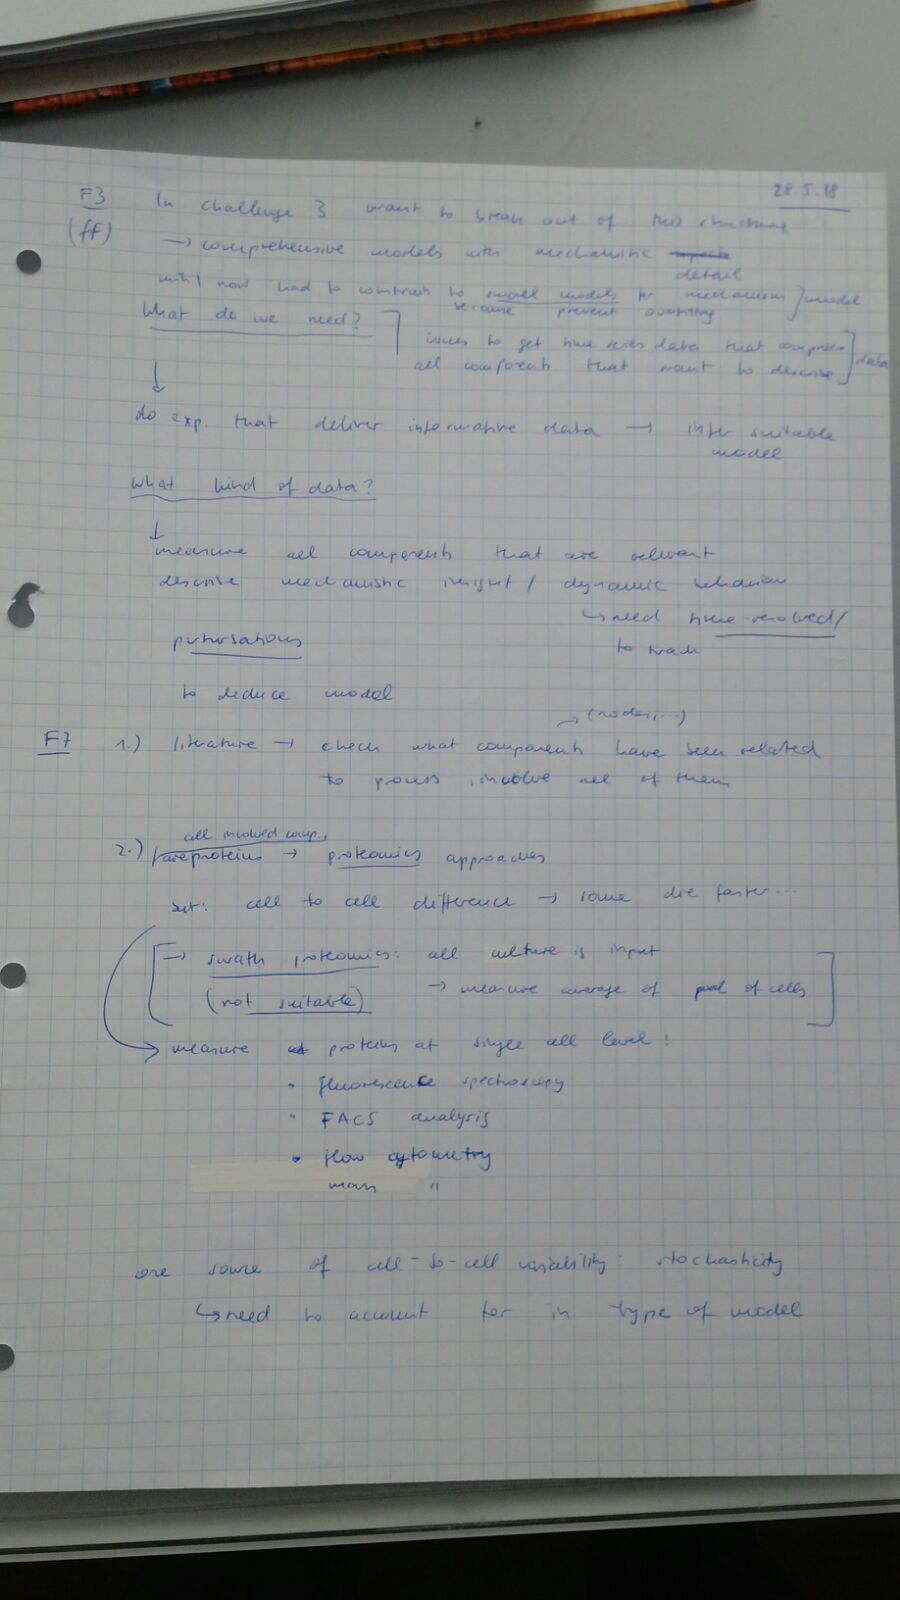 28.5.18
F3 In challenge 3 want to break out of this structure
(ff) → comprehensive models with mechanistic detail
until now had to constrain to small models for mechanism ] model
because prevent overfitting
What do we need?
issues to get time series data that comprises ] data
all components that want to describe
↓
do exp. that deliver informative data → infer suitable
model
What kind of data?
↓
measure all components that are relevant
describe mechanistic insight / dynamic behavior
↳ need time-resolved/
perturbations
to track
to deduce model
→ (nodes, ...)
F7 1.) literature → check what components have been related
to process, involve all of them
all involved comp.
2.) are proteins → proteomics approaches
but: cell to cell difference → some die faster...
[→ swath proteomics: all culture is input
(not suitable) → measure average of pool of cells]
→ measure proteins at single cell level!
• fluorescence spectroscopy
• FACS analysis
• flow cytometry
mass "
one source of cell-to-cell variability: stochasticity
↳ need to account for in type of model